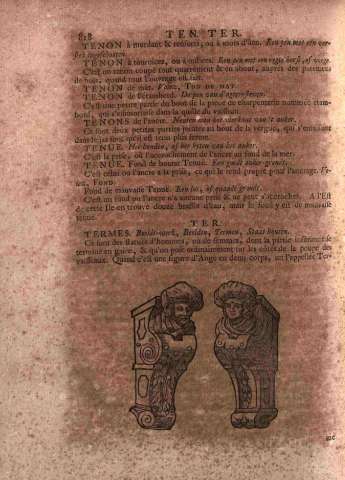 818 TEN. TER.
TENON à mordant & renfort, ou à mors d'âne. Een pen met een ver-
TENON à tournices, ou à oulices. Een pen met een regte borst, of voege.
C'est un tenon coupé tout quarrément & en about, auprès des paremens
de bois, quand tout l'ouvrage est fait.
TENON de mât. Voiez, TON DE MAT.
TENON de l'étambord. De pen van d'agter-steven.
C'est une petite partie du bout de la piece de charpenterie nommée étam-
bord, qui s'emmortoise dans la quille du vaisseau.
TENONS de l'ancre. Neuten aan het van't anker.
Ce sont deux petites parties jointes au bout de la vergue, qui s'entaillent
dans le jas pour qu'il en tienne plus ferme.
TENUE. Het houden, of het byten van het anker.
C'est la prise, ou l'accrochement de l'ancre au fond de la mer.
TENUE. Fond de bonne Tenuë. Een goede anker-grondt.
C'est celui où l'ancre a la prise, ce qui le rend propre pour l'ancrage. Vo-
iez, FOND.
Fond de mauvaise Tenuë. Een los, of quaade grondt.
C'est un fond où l'ancre n'a aucune prise & ne peut s'accrocher. A l'Est
de cette Ile on trouve douze brasses d'eau, mais le fond y est de mauvaise
tenuë.
TER.
TERMES. Beeldt-werk, Beelden, Termen, Staat-houten.
Ce sont des statues d'hommes, ou de femmes, dont la partie inferieure se
termine en gaine, & qu'on pose ordinairement sur les côtés de la poupe des
vaisseaux. Quand c'est une figure d'Ange en demi corps, on l'appelle Ter-
me